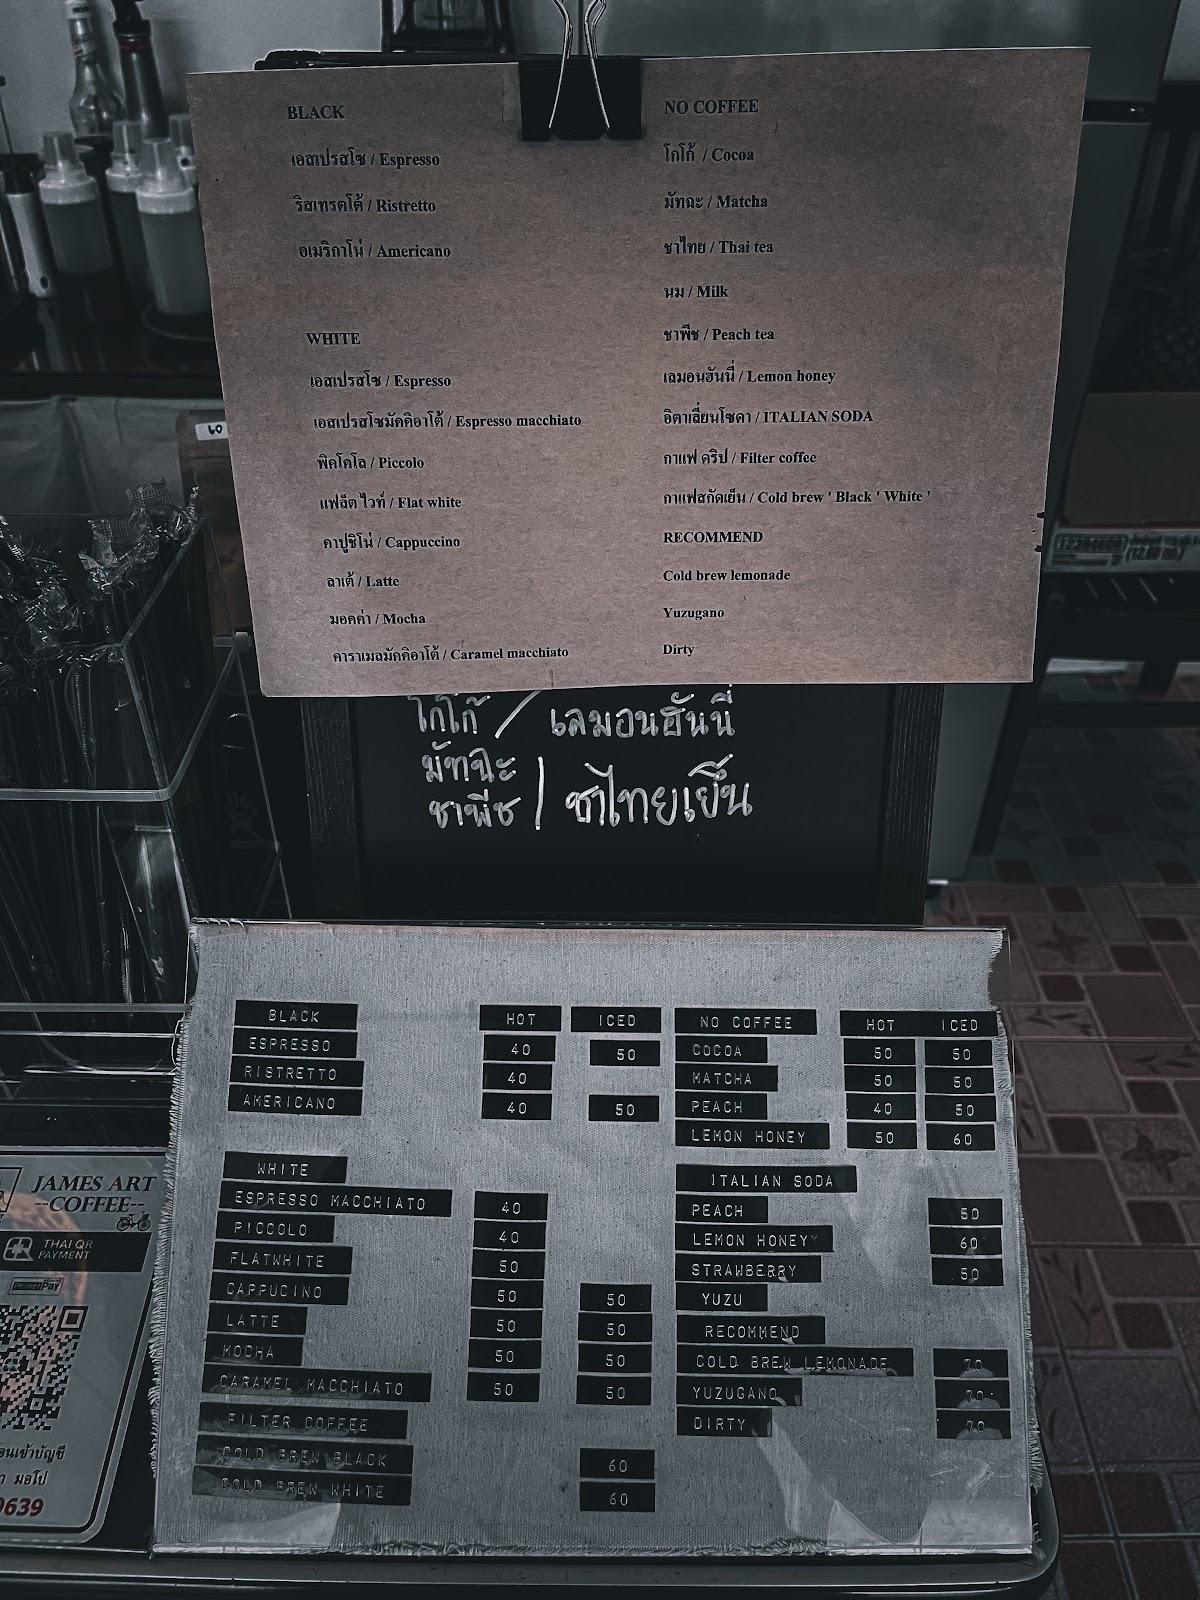 BLACK
เอสเปรสโซ / Espresso
ริสเทรตโต้ / Ristretto
อเมริกาโน่ / Americano
WHITE
เอสเปรสโซ / Espresso
เอสเปรสโซมัคคิอาโต้ / Espresso macchiato
พิคโคโล / Piccolo
แฟล็ต ไวท์ / Flat white
คาปูชิโน่ / Cappuccino
ลาเต้ / Latte
มอคค่า / Mocha
คาราเมลมัคคิอาโต้ / Caramel macchiato
NO COFFEE
โกโก้ / Cocoa
มัทฉะ / Matcha
ชาไทย / Thai tea
นม / Milk
ชาพีช / Peach tea
เลมอนฮันนี่ / Lemon honey
อิตาเลี่ยนโซดา / ITALIAN SODA
กาแฟ ดริป / Filter coffee
กาแฟสกัดเย็น / Cold brew ' Black ' White '
RECOMMEND
Cold brew lemonade
Yuzugano
Dirty
60
โกโก้ / เลมอนฮันนี่
มัทฉะ
ชาพีช / ชาไทยเย็น
BLACK HOT ICED
ESPRESSO 40 50
RISTRETTO 40
AMERICANO 40 50
WHITE
ESPRESSO MACCHIATO 40
PICCOLO 40
FLATWHITE 50
CAPPUCINO 50 50
LATTE 50 50
MOCHA 50 50
CARAMEL MACCHIATO 50 50
FILTER COFFEE
COLD BREW BLACK 60
COLD BREW WHITE 60
NO COFFEE HOT ICED
COCOA 50 50
MATCHA 50 50
PEACH 40 50
LEMON HONEY 50 60
ITALIAN SODA
PEACH 50
LEMON HONEY 60
STRAWBERRY 50
YUZU
RECOMMEND
COLD BREW LEMONADE 70
YUZUGANO 70
DIRTY 70
JAMES ART
--COFFEE--
THAI QR
PAYMENT
มอโป
0639